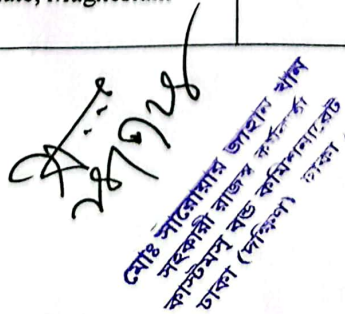 Magnesium
মোঃ সারোয়ার জাহান খান
সহকারী রাজস্ব কর্মকর্তা
কাস্টমস্ বন্ড কমিশনারেট
ঢাকা (দক্ষিণ) ঢাকা